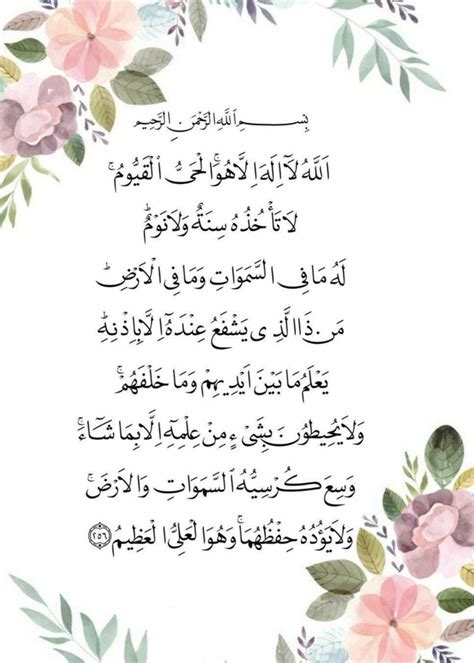 بِسْمِ ٱللَّهِ ٱلرَّحْمَٰنِ ٱلرَّحِيمِ
اَللّٰهُ لَآ اِلٰهَ اِلَّا هُوَۚ اَلْحَىُّ الْقَيُّومُۚ
لَا تَأْخُذُهُ سِنَةٌ وَلَا نَوْمٌۜ
لَهُ مَا فِى السَّمٰوَاتِ وَمَا فِى الْاَرْضِۜ
مَنْ ذَا الَّذِى يَشْفَعُ عِنْدَهُٓ اِلَّا بِاِذْنِهِۜ
يَعْلَمُ مَا بَيْنَ اَيْدِيهِمْ وَمَا خَلْفَهُمْۚ
وَلَا يُحِيطُونَ بِشَىْءٍ مِنْ عِلْمِهِٓ اِلَّا بِمَا شَٓاءَۚ
وَسِعَ كُرْسِيُّهُ السَّمٰوَاتِ وَالْاَرْضَۚ
وَلَا يَؤُ۫دُهُ حِفْظُهُمَاۚ وَهُوَ الْعَلِىُّ الْعَظِيمُ ﴿٢٥٦﴾